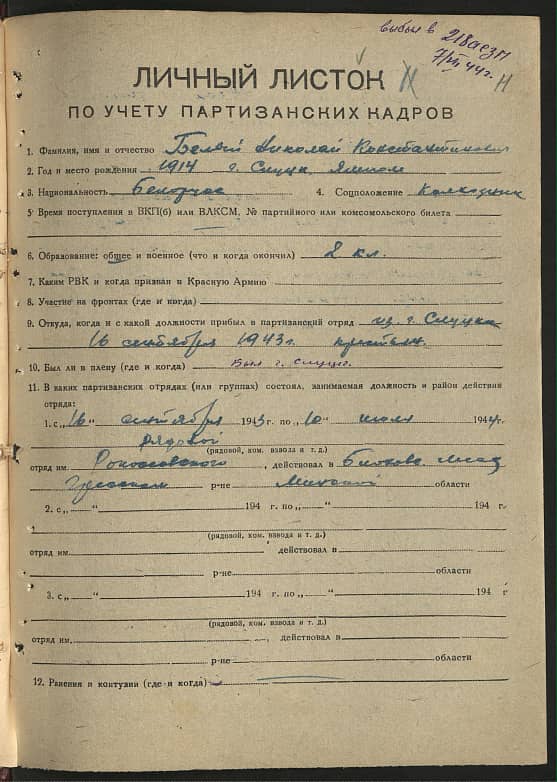 выбыл в 218 азсп
7/VII 44 г.
Н
ЛИЧНЫЙ ЛИСТОК
ПО УЧЕТУ ПАРТИЗАНСКИХ КАДРОВ
1. Фамилия, имя и отчество Белый Николай Константинович
2. Год и место рождения 1914 г. Слуцк
3. Национальность Белорус 4. Соцположение Колхозник
5. Время поступления в ВКП(б) или ВЛКСМ, № партийного или комсомольского билета
6. Образование: общее и военное (что и когда окончил) 2 кл.
7. Каким РВК и когда призван в Красную Армию
8. Участие на фронтах (где и когда)
9. Откуда, когда и с какой должности прибыл в партизанский отряд из г. Слуцка
16 сентября 1943 г. крестьян.
10. Был ли в плену (где и когда) был г. Слуцк
11. В каких партизанских отрядах (или группах) состоял, занимаемая должность и район действия
отряда:
1. с „16“ сентября 1943 г. по „10“ июля 1944 г.
рядовой
(рядовой, ком. взвода и т. д.)
отряд им. Рокоссовского, действовал в
Гресском р-не Минской области
2. с „ “ 194 г. по „ “ 194 г.
(рядовой, ком. взвода и т. д.)
отряд им. действовал в
р-не области
3. с „ “ 194 г. по „ “ 194 г
(рядовой, ком. взвода и т. д.)
отряд им. , действовал в
р-не области
12. Ранения и контузии (где и когда)